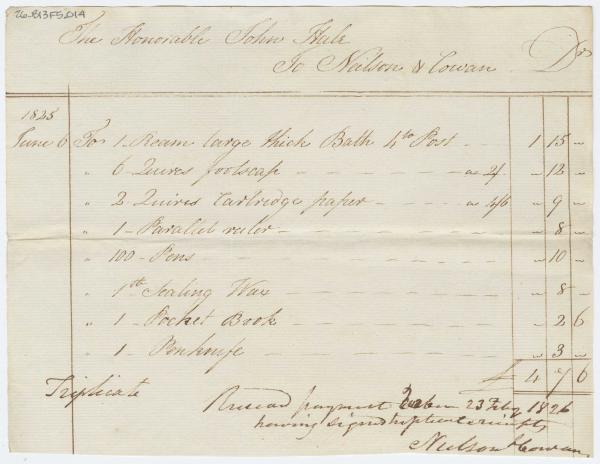 26-B13F5D14
The Honorable John Hale
To Neilson & Cowan Drs
1825
June 6 To 1 Ream large thick Bath 4to Post 1 15 "
" 6 Quires foolscap a 2/ " 12 "
" 2 Quires Cartridge paper a 4/6 " 9 "
" 1 Parallel ruler " 8 "
" 100 Pens " 10 "
" 1 lb Sealing Wax " 8 "
" 1 Pocket Book " 2 6
" 1 Penknife " 3 "
£ 4 7 6
Triplicate
Received payment Quebec 23 Feby 1826
having signed triplicate receipts
Neilson & Cowan